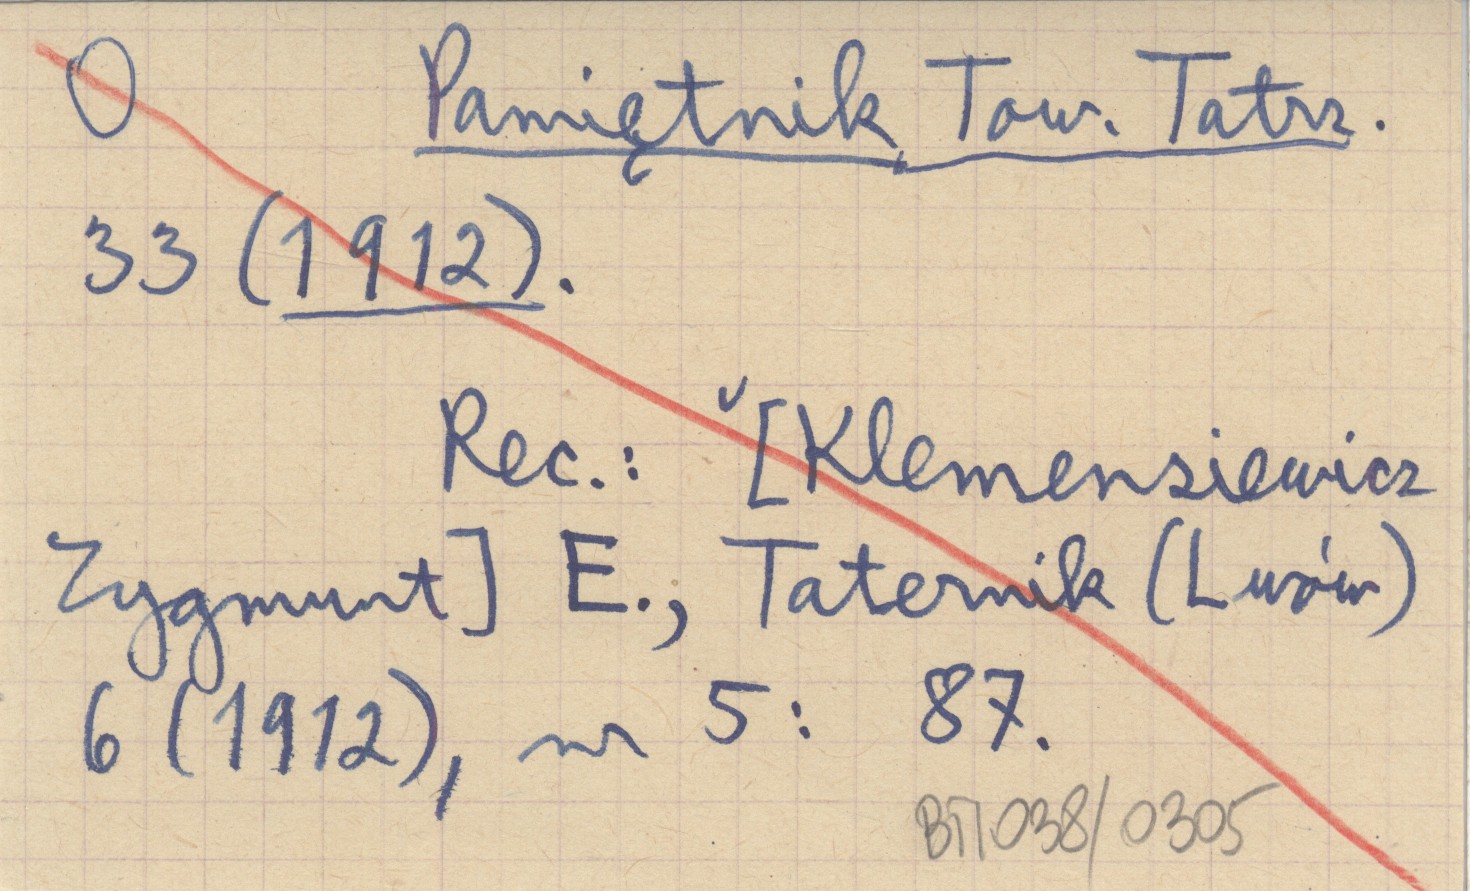 O Pamiętnik Tow. Tatrz.
33 (1912).
Rec.: [Klemensiewicz
Zygmunt] E., Taternik (Lwów)
6 (1912), nr 5: 87.
038/0305